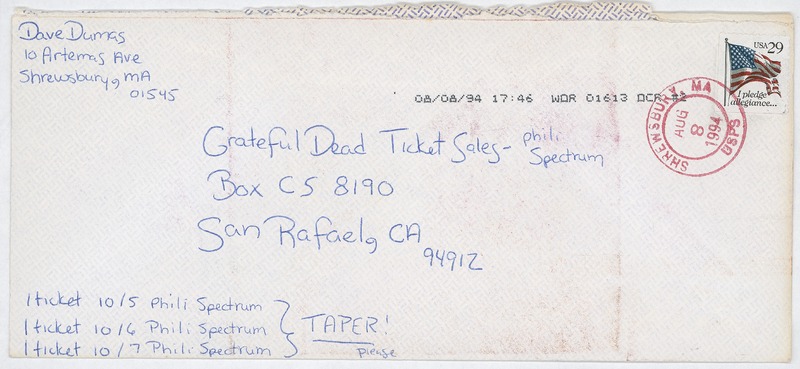 Dave Dumas
10 Artemas Ave
Shrewsbury, MA
01545
USA 29
I pledge
allegiance...
08/08/94 17:46 WOR 01613 OCR #2
SHREWSBURY, MA
AUG
8
1994
USPS
Grateful Dead Ticket Sales- phili
Spectrum
Box CS 8190
San Rafael, CA
94912
1 ticket 10/5 Phili Spectrum
1 ticket 10/6 Phili Spectrum
1 ticket 10/7 Phili Spectrum
TAPER!
please